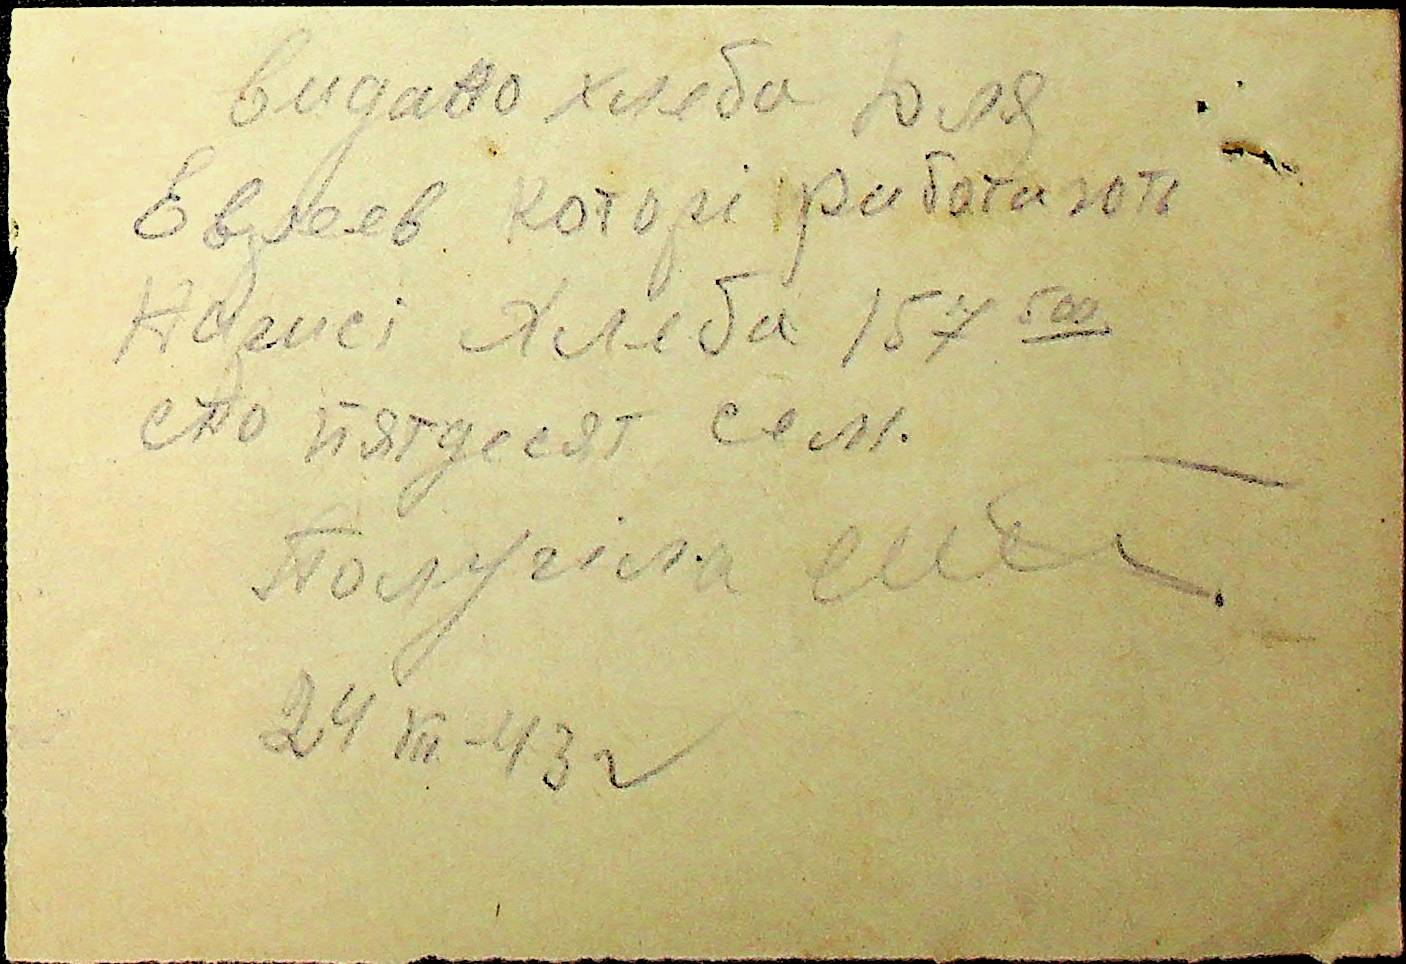 видано хлеба для
Евреев которі работают
Хлеба 157 500
сто пятдесят сем.
Получила
24 XII - 43 г